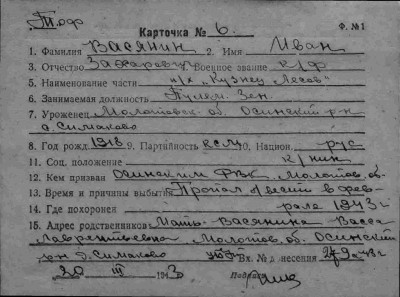 Тпоф
Карточка № 6. Ф. №1
1. Фамилия Васянин 2. Имя Иван
3. Отчество Захарович 4. Военное звание к/ф
5. Наименование части п/х "Кузнец Лесов"
6. Занимаемая должность Пулем. Зен.
7. Уроженец Молотовск. об. Осинский р-н
д. Симаково
8. Год рожд. 1918 9. Партийность ВЛСМ 10. Национ. рус
11. Соц. положение к/нин
12. Кем призван Осинским РВК Молотов. об.
13. Время и причины выбытия Пропал б/вести в фев-
14. Где похоронен рале 1943 г
15. Адрес родственников Мать-Васянина Васса
Лаврентьевна Молотов. об. Осинский
р-н д. Симаково Вх. № донесения
20 III 1943 Подпись